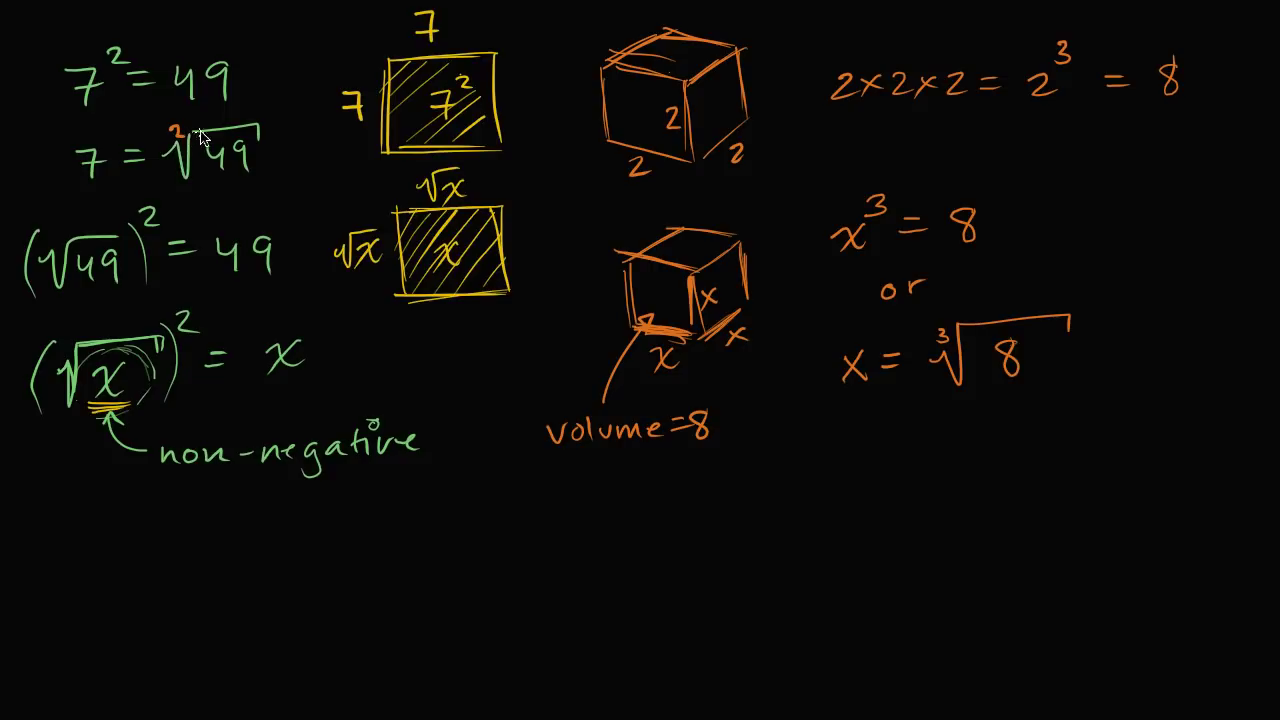 7² = 49
7 = ²√49
(√49)² = 49
(√x)² = x
non-negative
7
7
7²
√x
√x
x
2
2
2
x
x
x
volume=8
2×2×2 = 2³ = 8
x³ = 8
or
x = ³√8